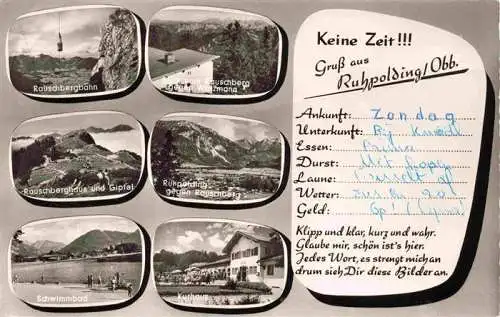 Rauschbergbahn
Rauschberg
gegen Watzmann
Rauschberghaus und Gipfel
Ruhpolding
gegen Rauschberg
Schwimmbad
Kurhaus
Keine Zeit!!!
Gruß aus
Ruhpolding/Obb.
Ankunft: Zondag
Unterkunft: Bij
Essen: Prima
Durst: Met
Laune:
Wetter:
Geld: Op
Klipp und klar, kurz und wahr.
Glaube mir, schön ist's hier.
Jedes Wort, es strengt mich an
drum sieh Dir diese Bilder an.